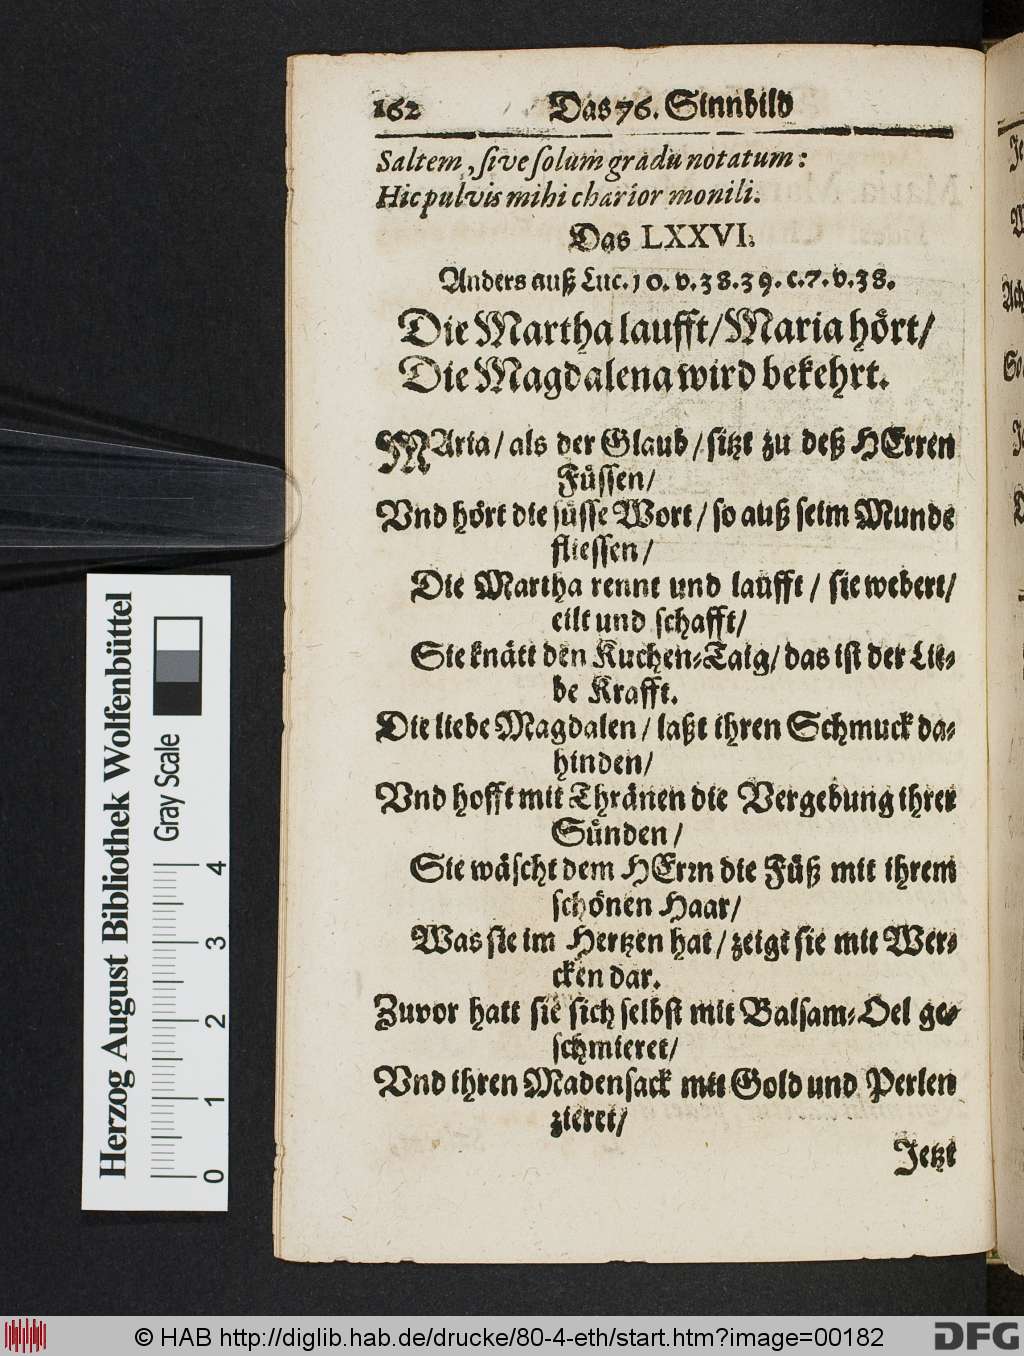 162 Das 76. Sinnbild
Saltem, sive solum gradu notatum:
Hic pulvis mihi charior monili.
Das LXXVI.
Anders auß Luc. 10. v. 38. 39. c. 7. v. 38.
Die Martha laufft/ Maria hört/
Die Magdalena wird bekehrt.
MAria/ als der Glaub/ sitzt zu deß HErren
Füssen/
Vnd hört die süsse Wort/ so auß seim Munde
fliessen/
Die Martha rennt und laufft/ sie webert/
eilt und schafft/
Sie knätt den Kuchen-Taig/ das ist der Lie-
be Krafft.
Die liebe Magdalen/ laßt ihren Schmuck da-
hinden/
Vnd hofft mit Thränen die Vergebung ihrer
Sünden/
Sie wäscht dem HErrn die Füß mit ihrem
schönen Haar/
Was sie im Hertzen hat/ zeigt sie mit Wer-
cken dar.
Zuvor hatt sie sich selbst mit Balsam-Oel ge-
schmieret/
Vnd ihren Madensack mit Gold und Perlen
zieret/
Jetzt
Herzog August Bibliothek Wolfenbüttel
Gray Scale
0 1 2 3 4
© HAB http://diglib.hab.de/drucke/80-4-eth/start.htm?image=00182
DFG